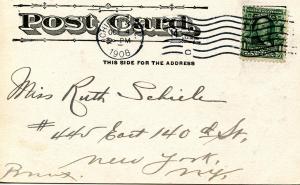 Post Card.
1908
THIS SIDE FOR THE ADDRESS
Miss Ruth Schiele
#440 East 140th St,
New York,
Bronx. N.Y.